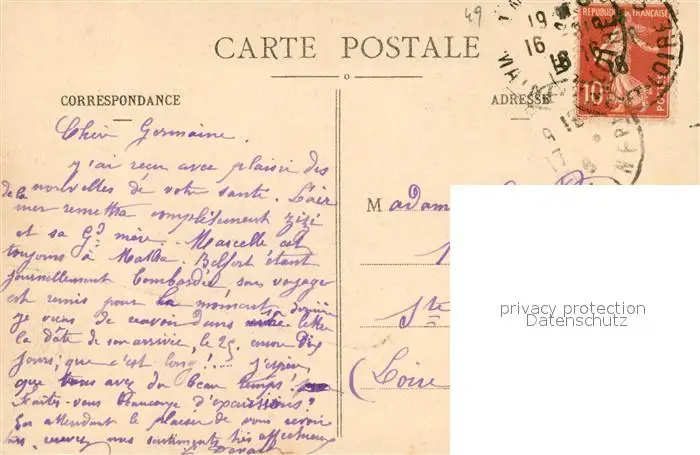 49
CARTE POSTALE
CORRESPONDANCE
ADRESSE
RÉPUBLIQUE FRANÇAISE
10
POSTES
Chère Germaine.
j'ai reçu avec plaisir des
nouvelles de votre santé. L'air
de la mer remettra complètement zizi
et sa Gd mère. Marcelle est
toujours à Matha. Belfort étant
journellement bombardé, son voyage
est remis pour le moment
je viens de recevoir dans sa dernière lettre
la date de son arrivée, le 25. encore Dix
jours; que c'est long!.... j'espère
que vous avez du beau temps!
Faites-vous beaucoup d'excursions?
En attendant le plaisir de vous revoir
recevez nos sentiments très affectueux
Madame
Ste
(Loire
privacy protection
Datenschutz